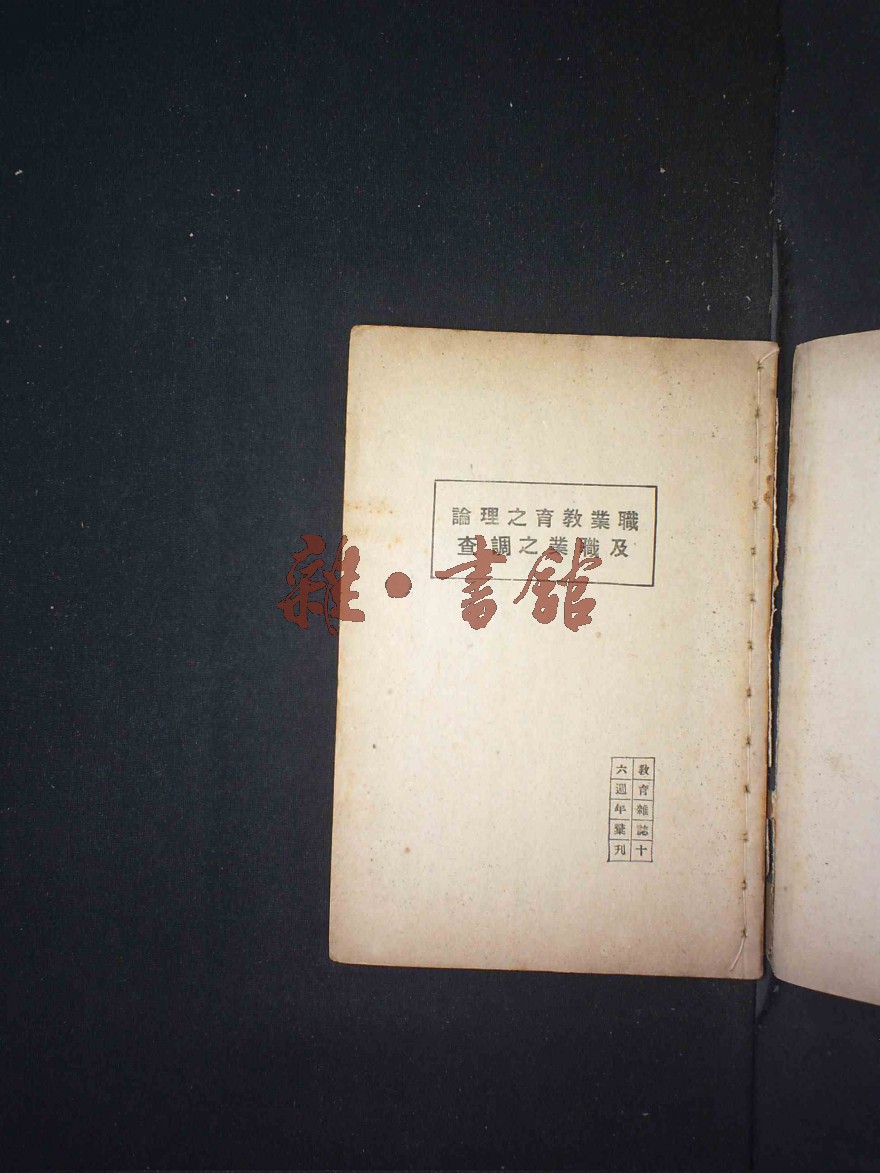 職業教育之理論
及職業之調查
教育雜誌十
六週年彙刊
雜·書館